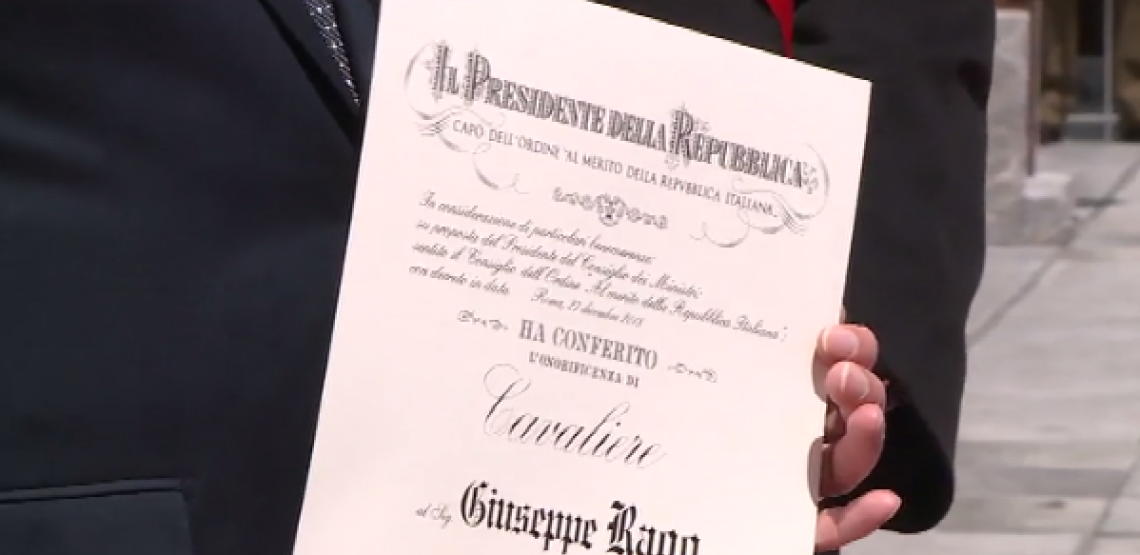 Il Presidente della Repubblica
CAPO DELL'ORDINE "AL MERITO DELLA REPVBBLICA ITALIANA"
In considerazione di particolari benemerenze;
su proposta del Presidente del Consiglio dei Ministri;
sentito il Consiglio dell'Ordine "Al merito della Repubblica Italiana";
con decreto in data Roma, 27 dicembre 2018
HA CONFERITO
L'ONORIFICENZA DI
Cavaliere
al Sig. Giuseppe Rago